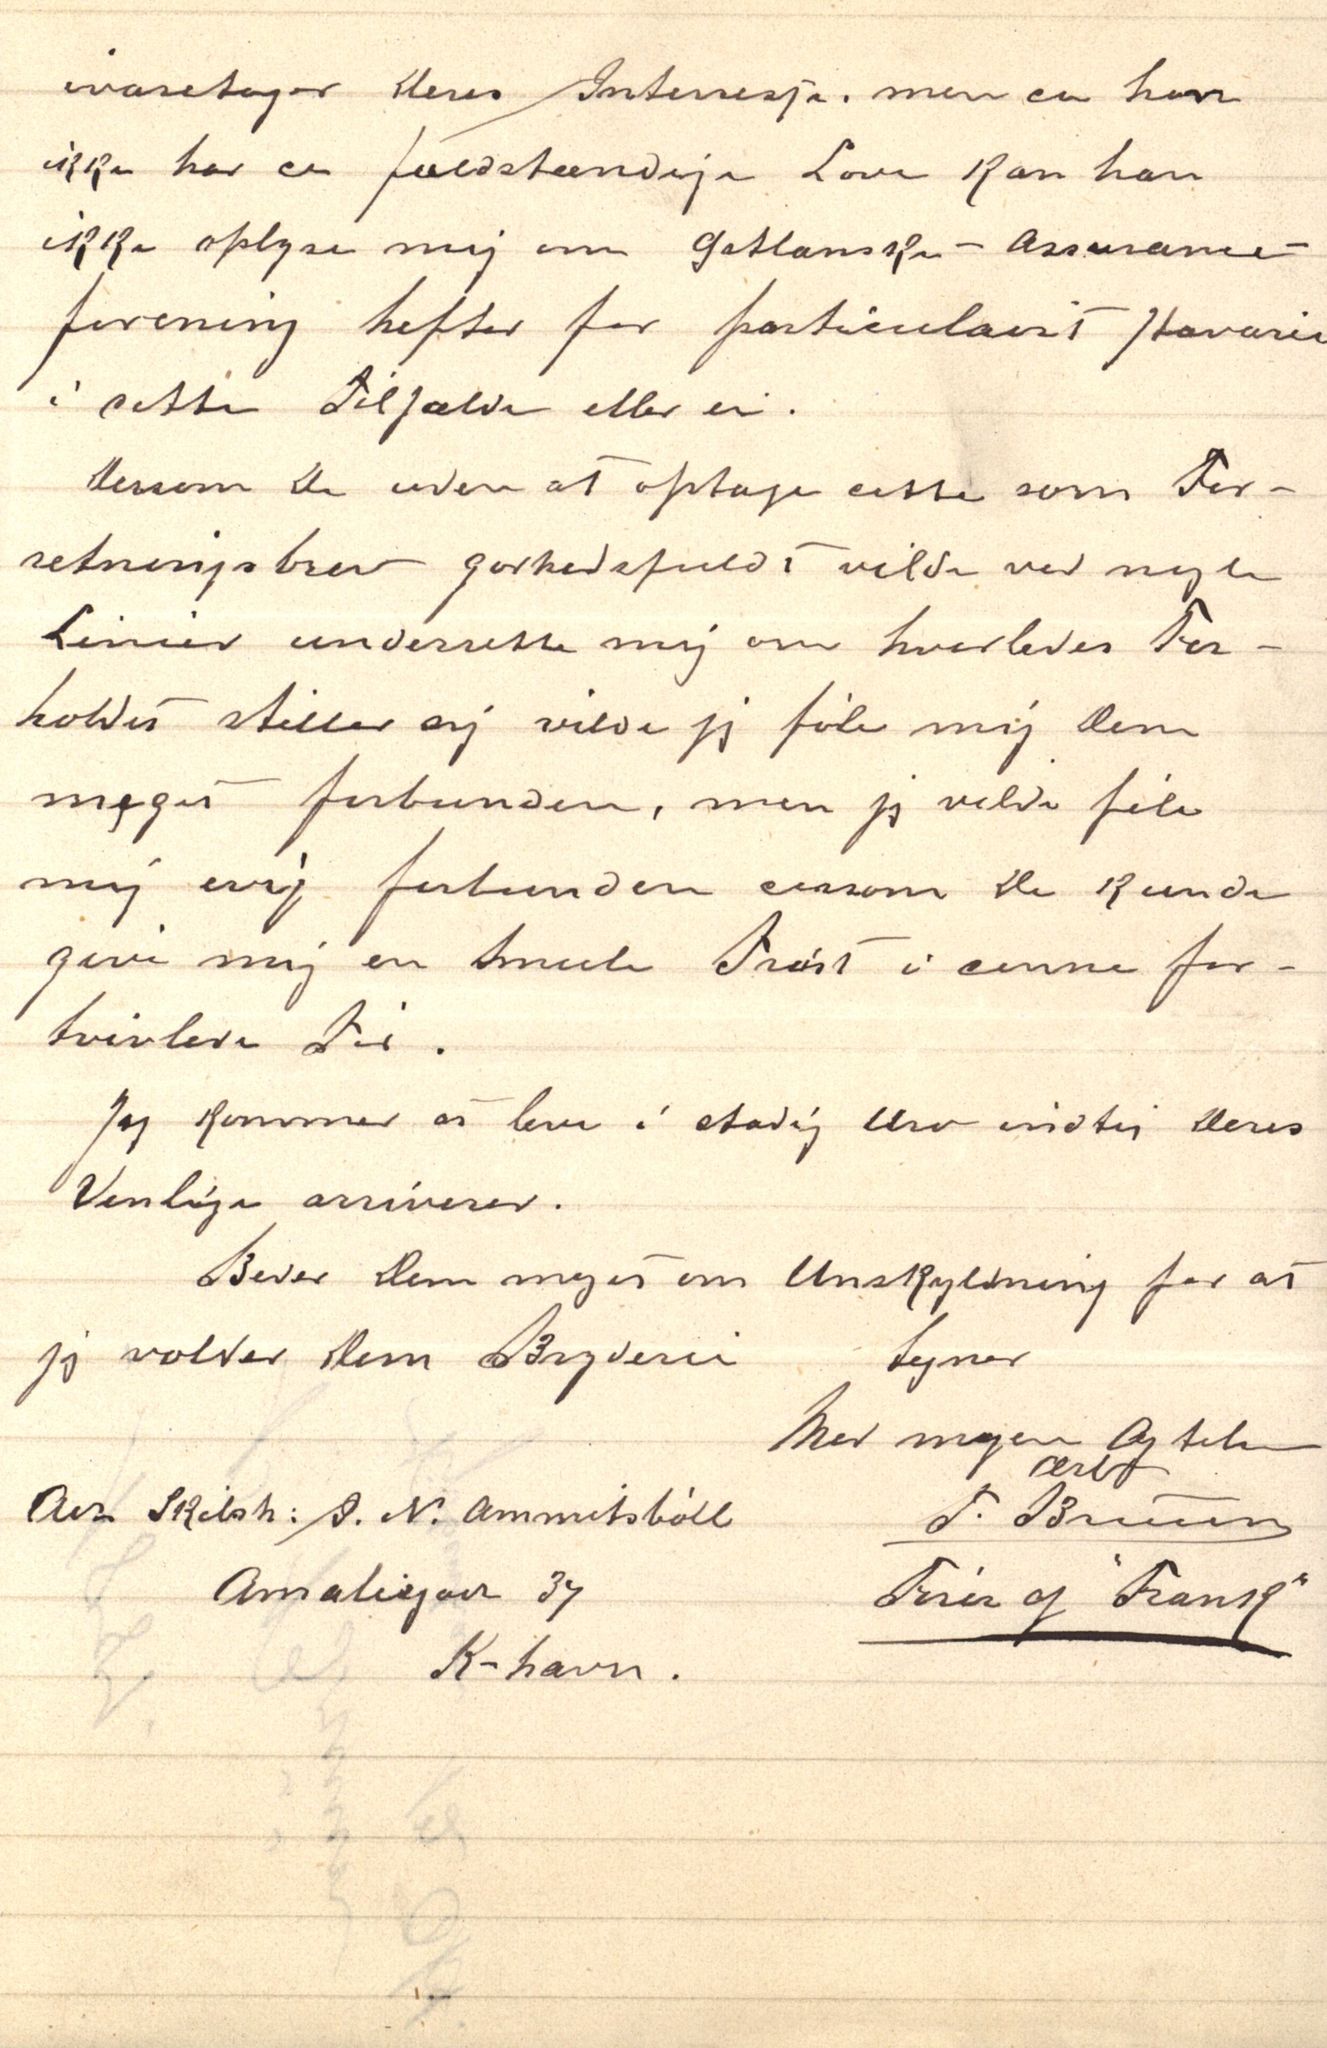 ivaretager deres Interresse. men da han
ikke har de fuldstændige Love kan han
ikke oplyse mig om Østlanske - Assurance-
forening hefter for particulært Havarie
i dette Tilfælde eller ei.
Dersom De uden at optage dette som For-
retningsbrev godhedsfuldt vilde ved nogle
Linier underrette mig om hvorledes For-
holdet stiller sig vilde jeg føle mig Dem
meget forbunden, men jeg vilde føle
mig evig forbunden dersom De kunde
give mig en Smule Trøst i denne for-
tvivlede Tid.
Jeg kommer at leve i stadig Uro indtil Deres
Venlige arriverer.
Beder Dem meget om Unskyldning for at
jeg volder Dem Bryderi tegner
Med megen Agtelse
ærb
T. Bruun
Fører af "Frank"
Adr. Skibsh: S. N. Ammitsbøll
Amaliegade 37
K-havn.